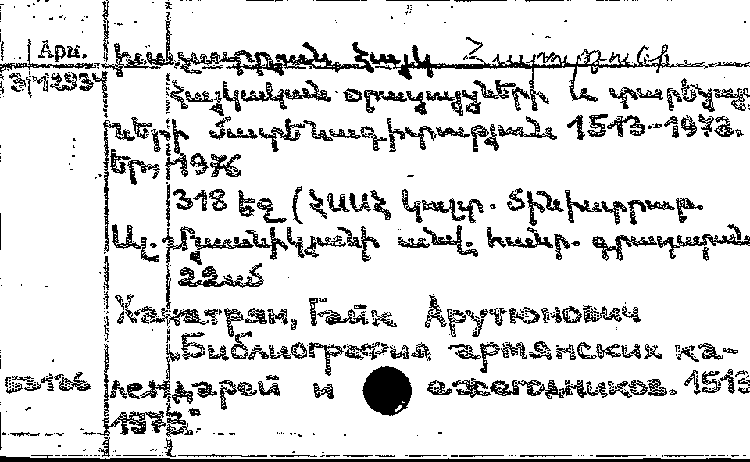 Арм. Խանատրյան Հայկ Հարություն
3/12934
Հայկական օրացույցների և տարեցույց
ների մատենագիտություն 1513-1973.
Եր., 1976
318 եջ (ՀՍՍՀ կուլտ. մինիստրութ.
Ալ. Մյասնիկյանի անվ. հանր. գրադարան
22սմ
Ханатрян, Гайк Арутюнович
„Библиография армянских ка-
Бз136 лендарей и ежегодников. 1513
1973."